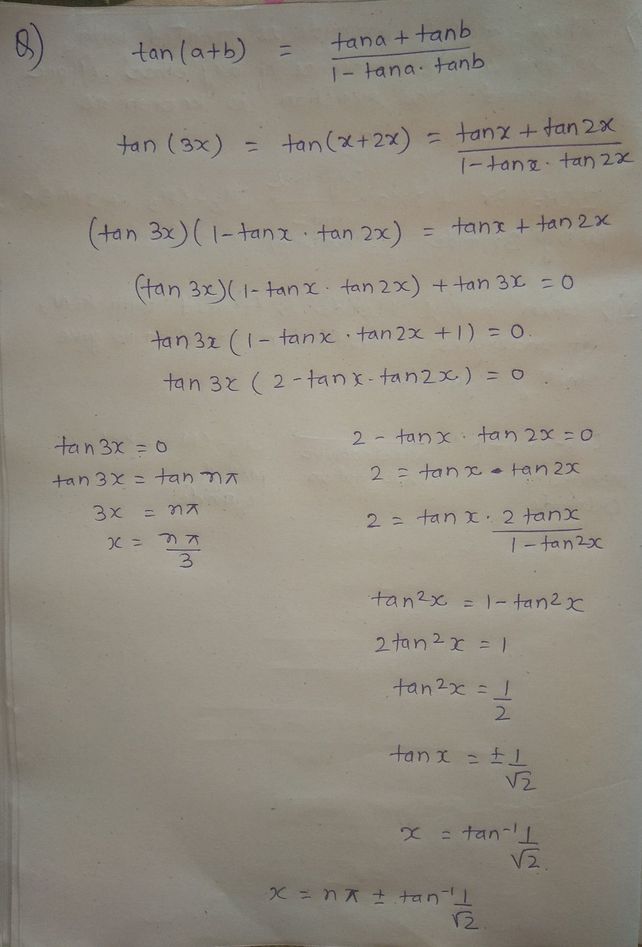 Q) tan(a+b) = (tana + tanb)/(1 - tana · tanb)
tan (3x) = tan(x+2x) = (tanx + tan2x)/(1-tanx · tan 2x)
(tan 3x)(1-tanx · tan 2x) = tanx + tan2x
(tan 3x)(1-tanx · tan2x) + tan3x = 0
tan3x (1 - tanx · tan2x +1) = 0.
tan 3x (2 - tanx · tan2x) = 0
tan3x = 0
tan3x = tan nπ
3x = nπ
x = nπ/3
2 - tanx · tan2x = 0
2 = tanx · tan2x
2 = tan x · 2 tanx/(1 - tan²x)
tan²x = 1 - tan²x
2tan²x = 1
tan²x = 1/2
tan x = ± 1/√2
x = tan⁻¹ 1/√2.
x = nπ ± tan⁻¹ 1/√2.